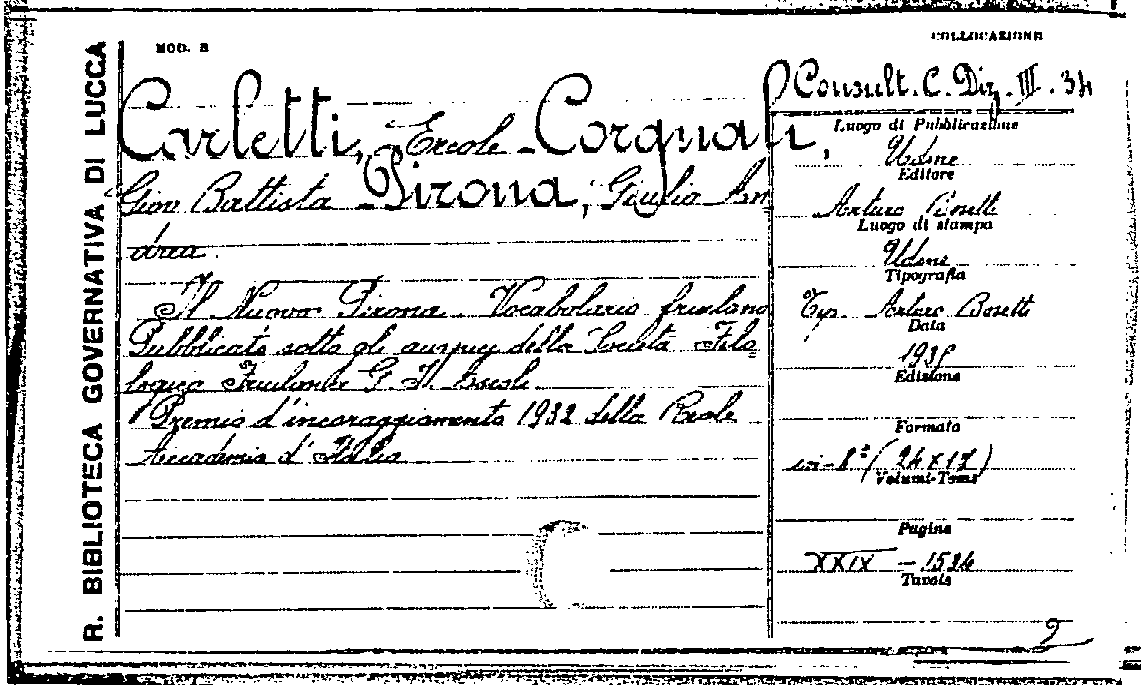 R. BIBLIOTECA GOVERNATIVA DI LUCCA
MOD. B
COLLOCAZIONE
Consult. C. Diz. III. 34
Carletti, Ercole - Corgnali,
Gion Battista Pirona, Giulio An
drea.
Il Nuovo Pirona. Vocabolario friulano
Pubblicato sotto gli auspici della Società Filo
logica Friulana G. I. Ascoli.
Premio d'incoraggiamento 1932 della Reale
Accademia d'Italia
Luogo di Pubblicazione
Udine
Editore
Arturo Bosetti
Luogo di stampa
Udine
Tipografia
Tip. Arturo Bosetti
Data
1935
Edizione
Formato
in-8° (24 x 17)
Volumi-Tomi
Pagine
XXIX - 1524
Tavole